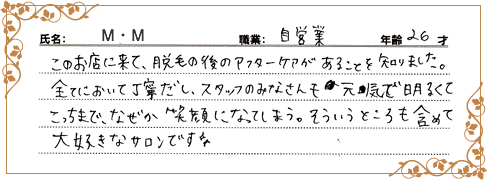 氏名: M・M 職業: 自営業 年齢 26 才
このお店に来て、脱毛の後のアフターケアがあることを知りました。
全てにおいて丁寧だし、スタッフのみなさんも元気で明るくて
こっちまで、なぜか笑顔になってしまう。そういうところも含めて
大好きなサロンですな